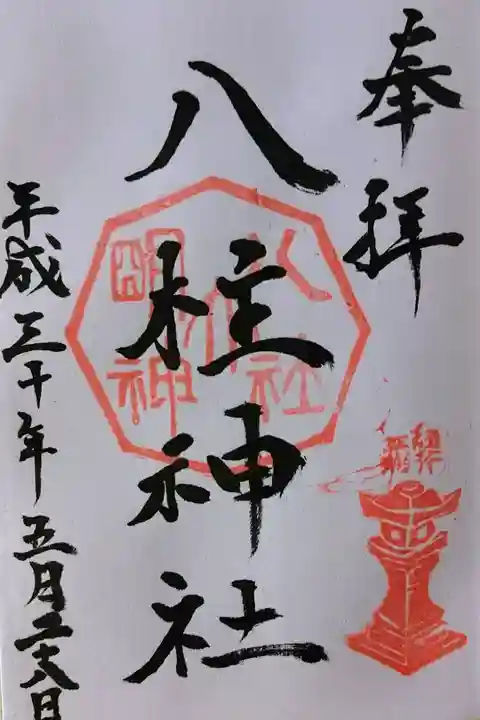 奉拝
八柱神社
八社
明神
平成三十年五月二十八日